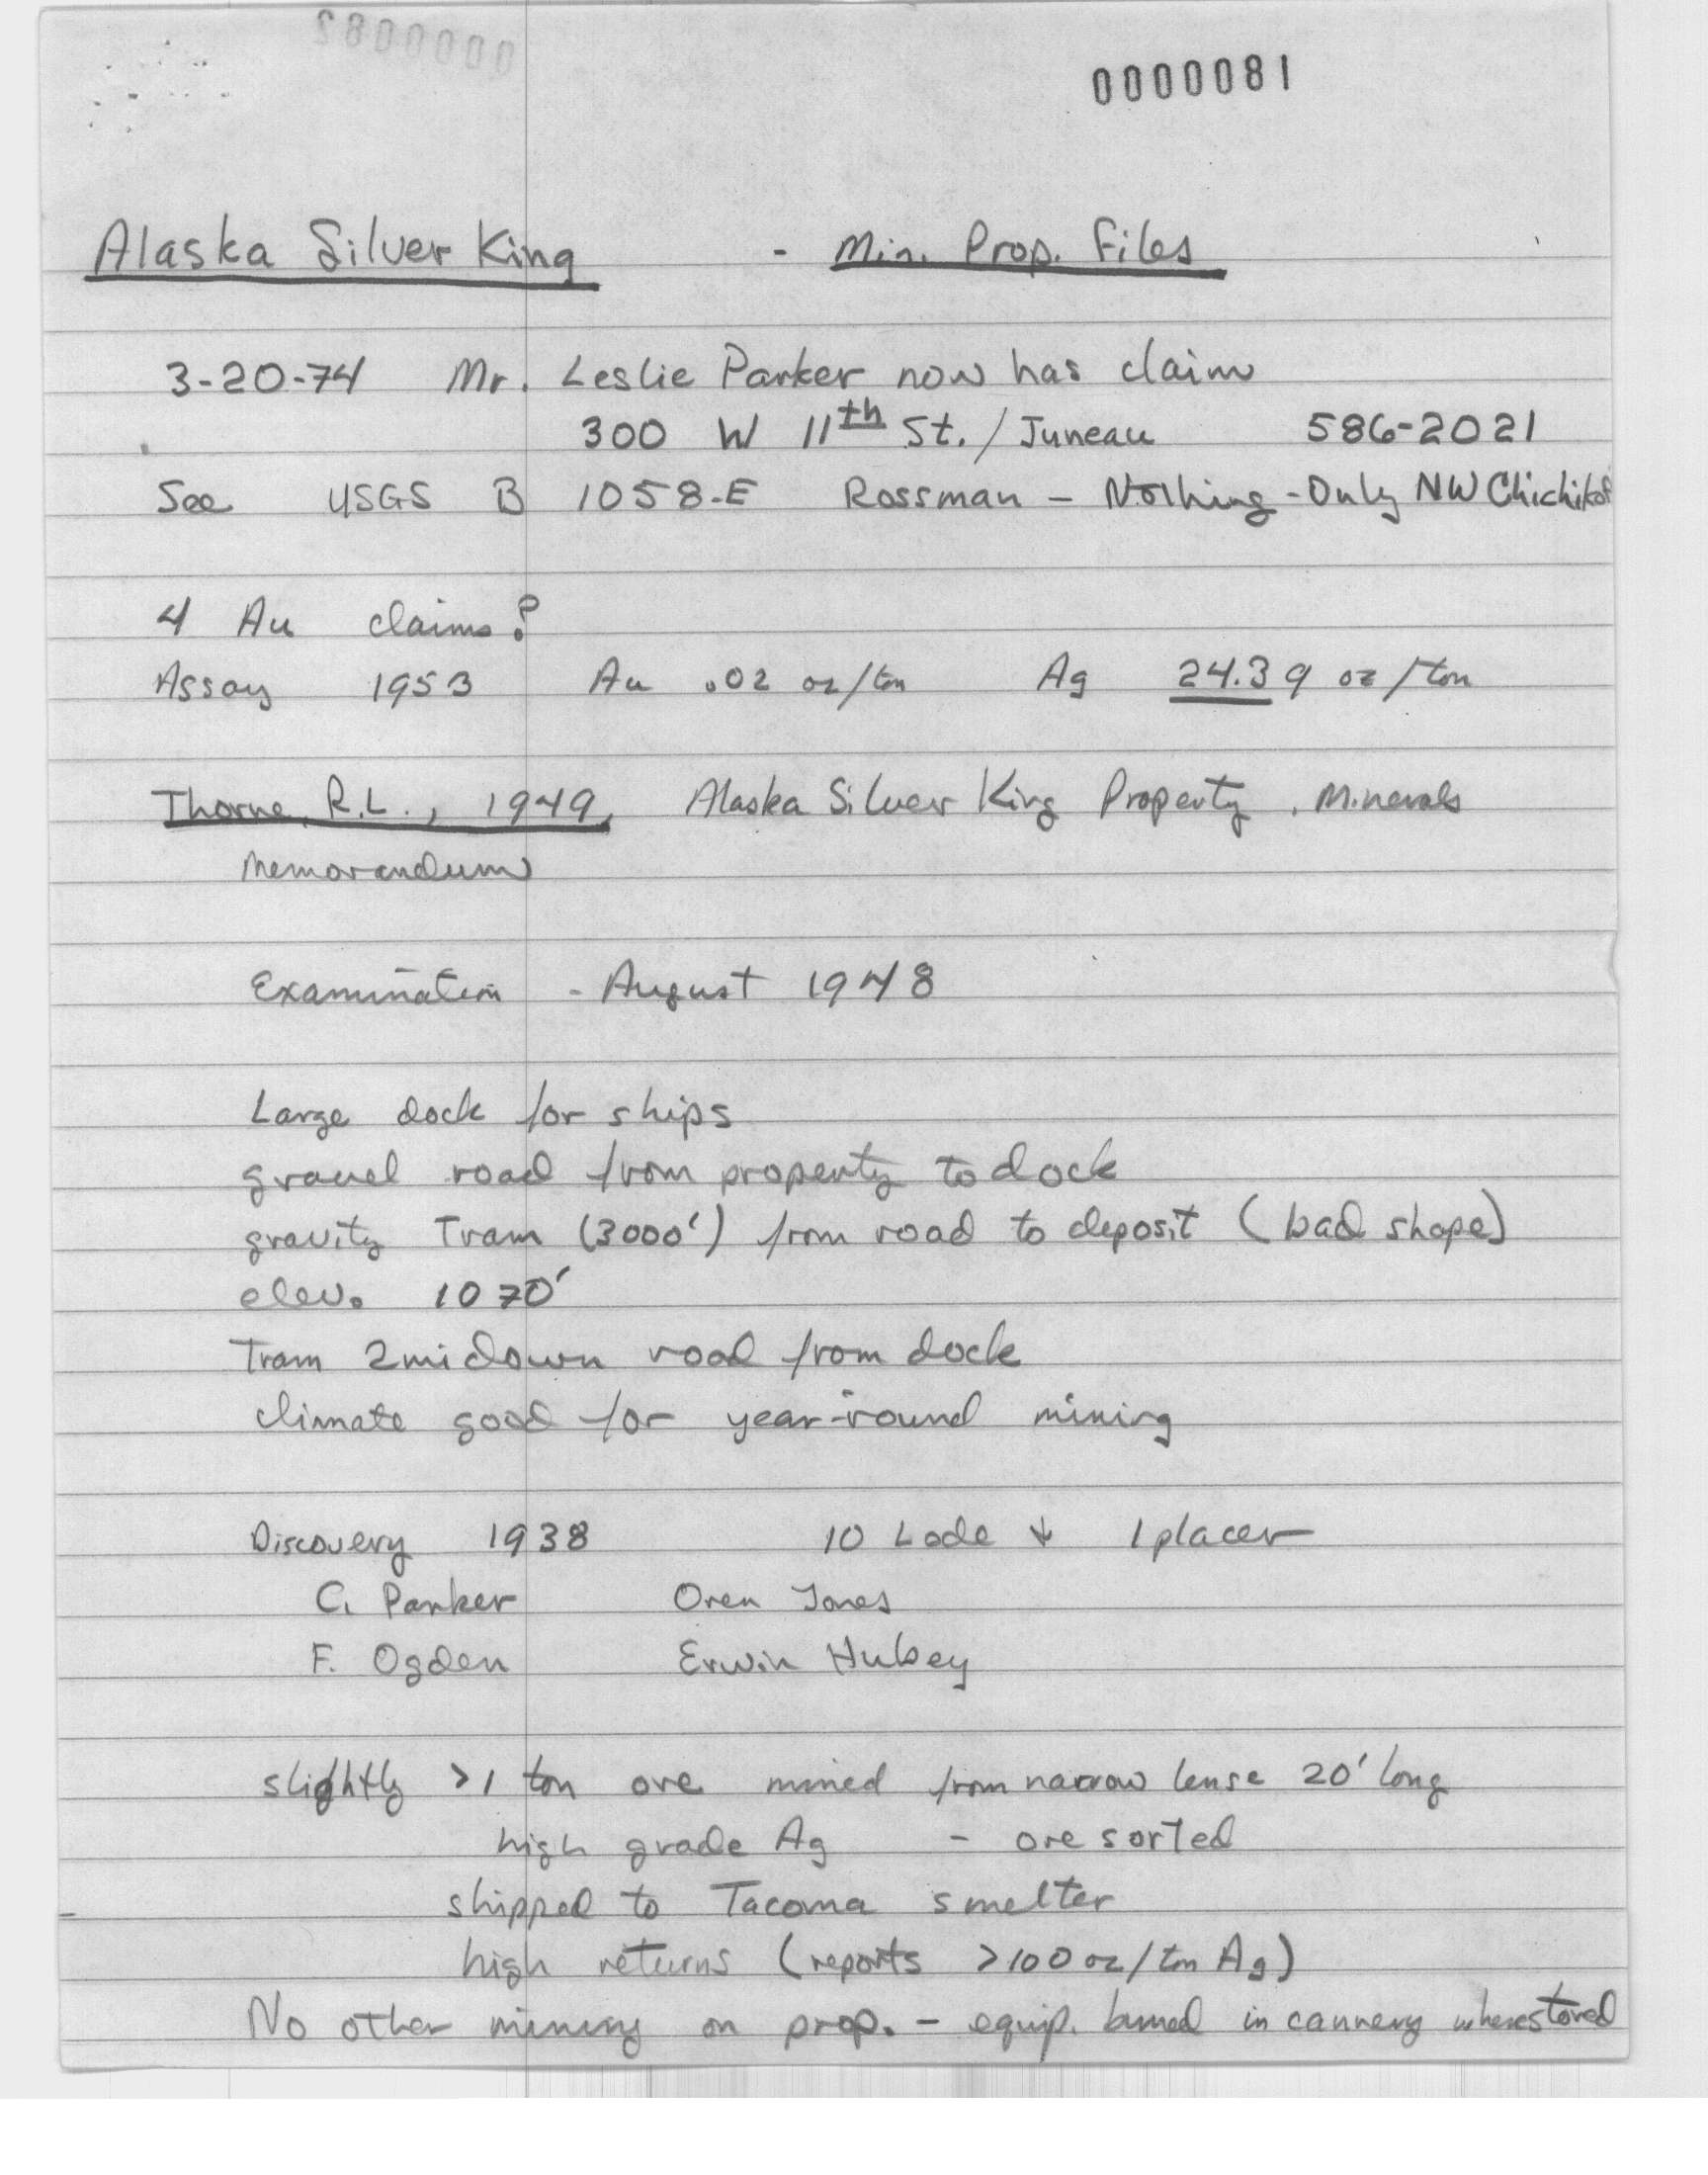 0000082
0000081
Alaska Silver King - Min. Prop. Files
3-20-74 Mr. Leslie Parker now has claim
300 W 11th St. / Juneau 586-2021
See USGS B 1058-E Rossman - Nothing - Only NW Chichikof
4 Au claims?
Assay 1953 Au .02 oz/ton Ag 24.39 oz/ton
Thorne, R.L., 1949, Alaska Silver King Property, Minerals
Memorandum
Examination - August 1948
Large dock for ships
gravel road from property to dock
gravity Tram (3000') from road to deposit (bad shape)
elev. 1070'
Tram 2 mi down road from dock
climate good for year-round mining
Discovery 1938 10 Lode + 1 placer
C. Parker Oren Jones
F. Ogden Erwin Hubey
slightly >1 ton ore mined from narrow lense 20' long
high grade Ag - ore sorted
shipped to Tacoma smelter
high returns (reports >100 oz/ton Ag)
No other mining on prop. - equip. burned in cannery where stored